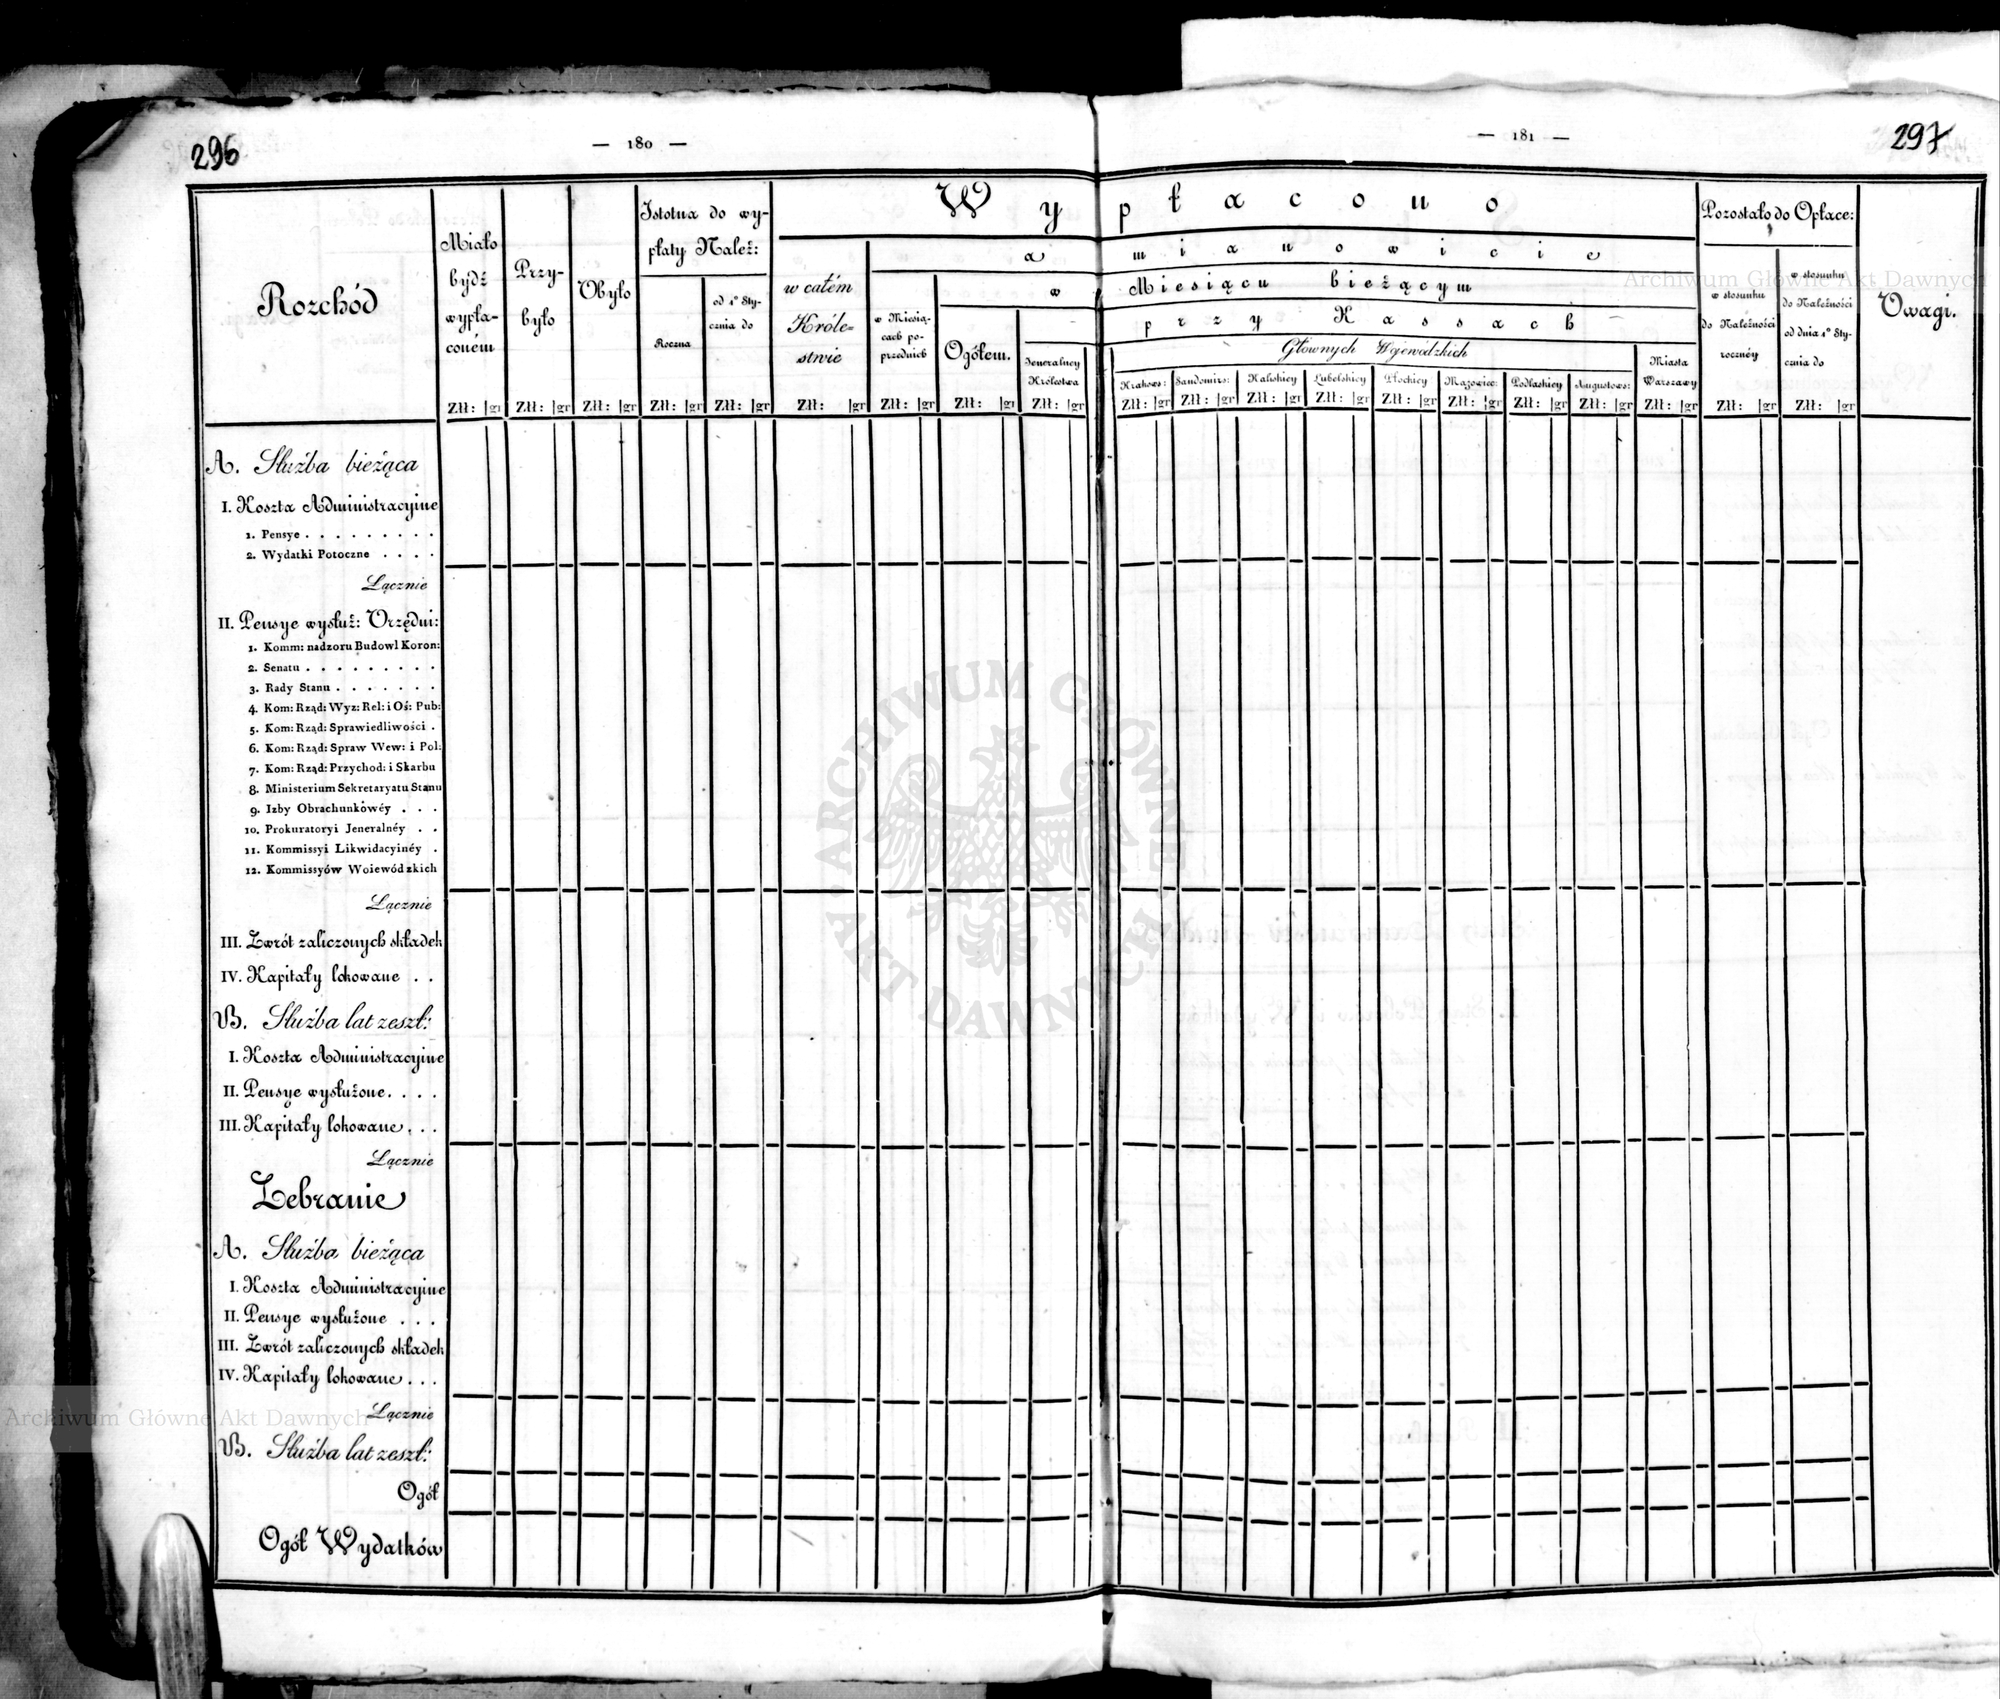 296
— 180 —
— 181 —
297
Rozchód
Miało
bydź
wypła-
coném
Przy-
było
Ubyło
Istotna do wy-
płaty Należ:
Roczna
od 1º Sty-
cznia do
Wypłacono
a mianowicie
w całém
Króle-
stwie
w Miesią-
cach po-
przednich
w Miesiącu bieżącym
Ogółem.
przy Kassach
Jeneralney
Królestwa
Głównych Wojewódzkich
Krakows: Sandomirs: Kaliskiey Lubelskiey Płockiey Mazowiec: Podlaskiey Augustows:
Miasta
Warszawy
Pozostało do Opłace:
w stosunku
do Należności
roczney
w stosunku
do Należności
od dnia 1º Sty-
cznia do
Uwagi.
Złł: gr Złł: gr Złł: gr Złł: gr Złł: gr Złł: gr Złł: gr Złł: gr Złł: gr Złł: gr Złł: gr Złł: gr Złł: gr Złł: gr Złł: gr Złł: gr Złł: gr Złł: gr Złł: gr Złł: gr
A. Służba bieżąca
I. Koszta Administracyine
1. Pensye . . . . . . . . .
2. Wydatki Potoczne . . . .
Łącznie
II. Pensye wysłuż: Urzędni:
1. Komm: nadzoru Budowl Koron:
2. Senatu . . . . . . . . .
3. Rady Stanu . . . . . . .
4. Kom: Rząd: Wyz: Rel: i Oś: Pub:
5. Kom: Rząd: Sprawiedliwości .
6. Kom: Rząd: Spraw Wew: i Pol:
7. Kom: Rząd: Przychod: i Skarbu
8. Ministerium Sekretaryatu Stanu
9. Izby Obrachunkowéy . . .
10. Prokuratoryi Jeneralnéy . .
11. Kommissyi Likwidacyinéy .
12. Kommissyów Woiewódzkich
Łącznie
III. Zwrót zaliczonych składek
IV. Kapitały lokowane . .
B. Służba lat zeszł:
I. Koszta Administracyine
II. Pensye wysłużone . . . .
III. Kapitały lokowane . . .
Łącznie
Zebranie
A. Służba bieżąca
I. Koszta Administracyine
II. Pensye wysłużone . . .
III. Zwrót zaliczonych składek
IV. Kapitały lokowane . . .
Łącznie
B. Służba lat zeszł:
Ogół
Ogół Wydatków
ARCHIWUM GŁÓWNE AKT DAWNYCH
Archiwum Główne Akt Dawnych
Archiwum Główne Akt Dawnych